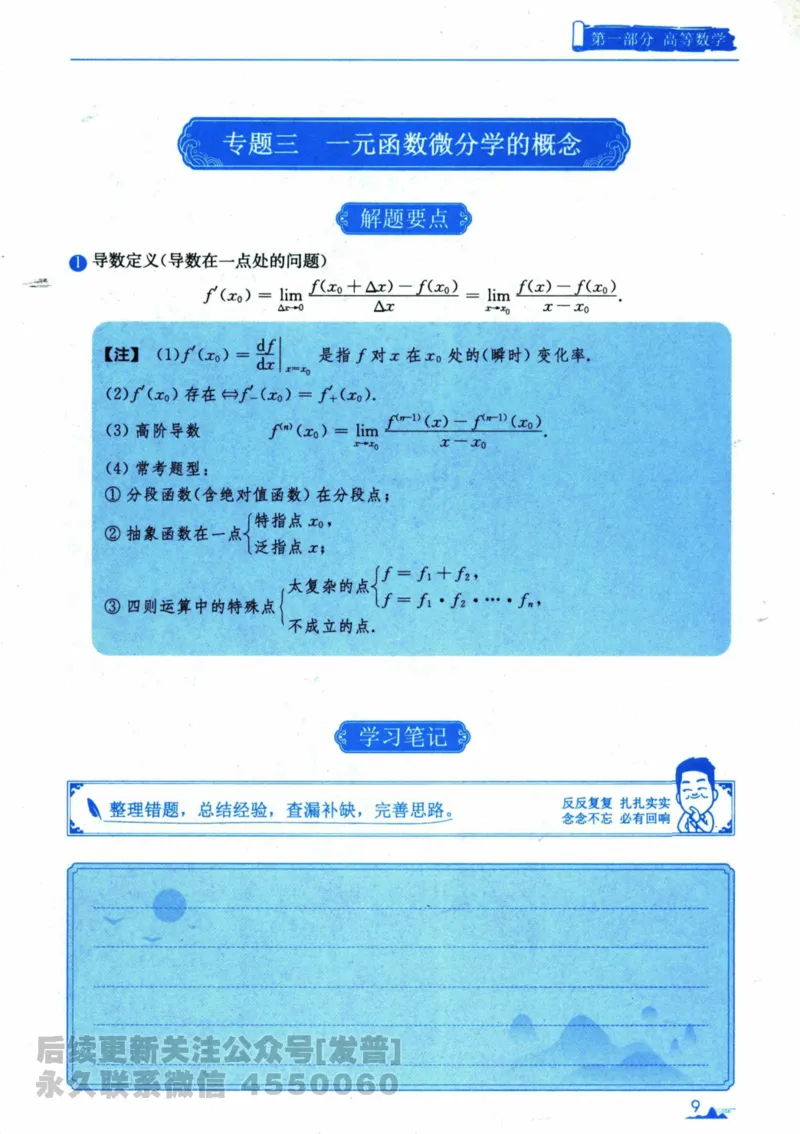 第一部分 高等数学
专题三 一元函数微分学的概念
解题要点
1 导数定义(导数在一点处的问题)
f′(x₀) = lim_{Δx→0} [f(x₀+Δx)−f(x₀)]/Δx = lim_{x→x₀} [f(x)−f(x₀)]/(x−x₀).
【注】 (1)f′(x₀) = df/dx|_{x=x₀} 是指 f 对 x 在 x₀ 处的(瞬时)变化率.
(2)f′(x₀)存在⇔f′₋(x₀) = f′₊(x₀).
(3) 高阶导数 f⁽ⁿ⁾(x₀) = lim_{x→x₀} [f⁽ⁿ⁻¹⁾(x)−f⁽ⁿ⁻¹⁾(x₀)]/(x−x₀).
(4) 常考题型:
① 分段函数(含绝对值函数)在分段点;
② 抽象函数在一点{特指点 x₀,
泛指点 x;
③ 四则运算中的特殊点{太复杂的点{f = f₁+f₂,
f = f₁·f₂·…·fₙ,
不成立的点.
学习笔记
整理错题，总结经验，查漏补缺，完善思路。
反反复复 扎扎实实
念念不忘 必有回响
后续更新关注公众号[发普]
永久联系微信 4550060
9